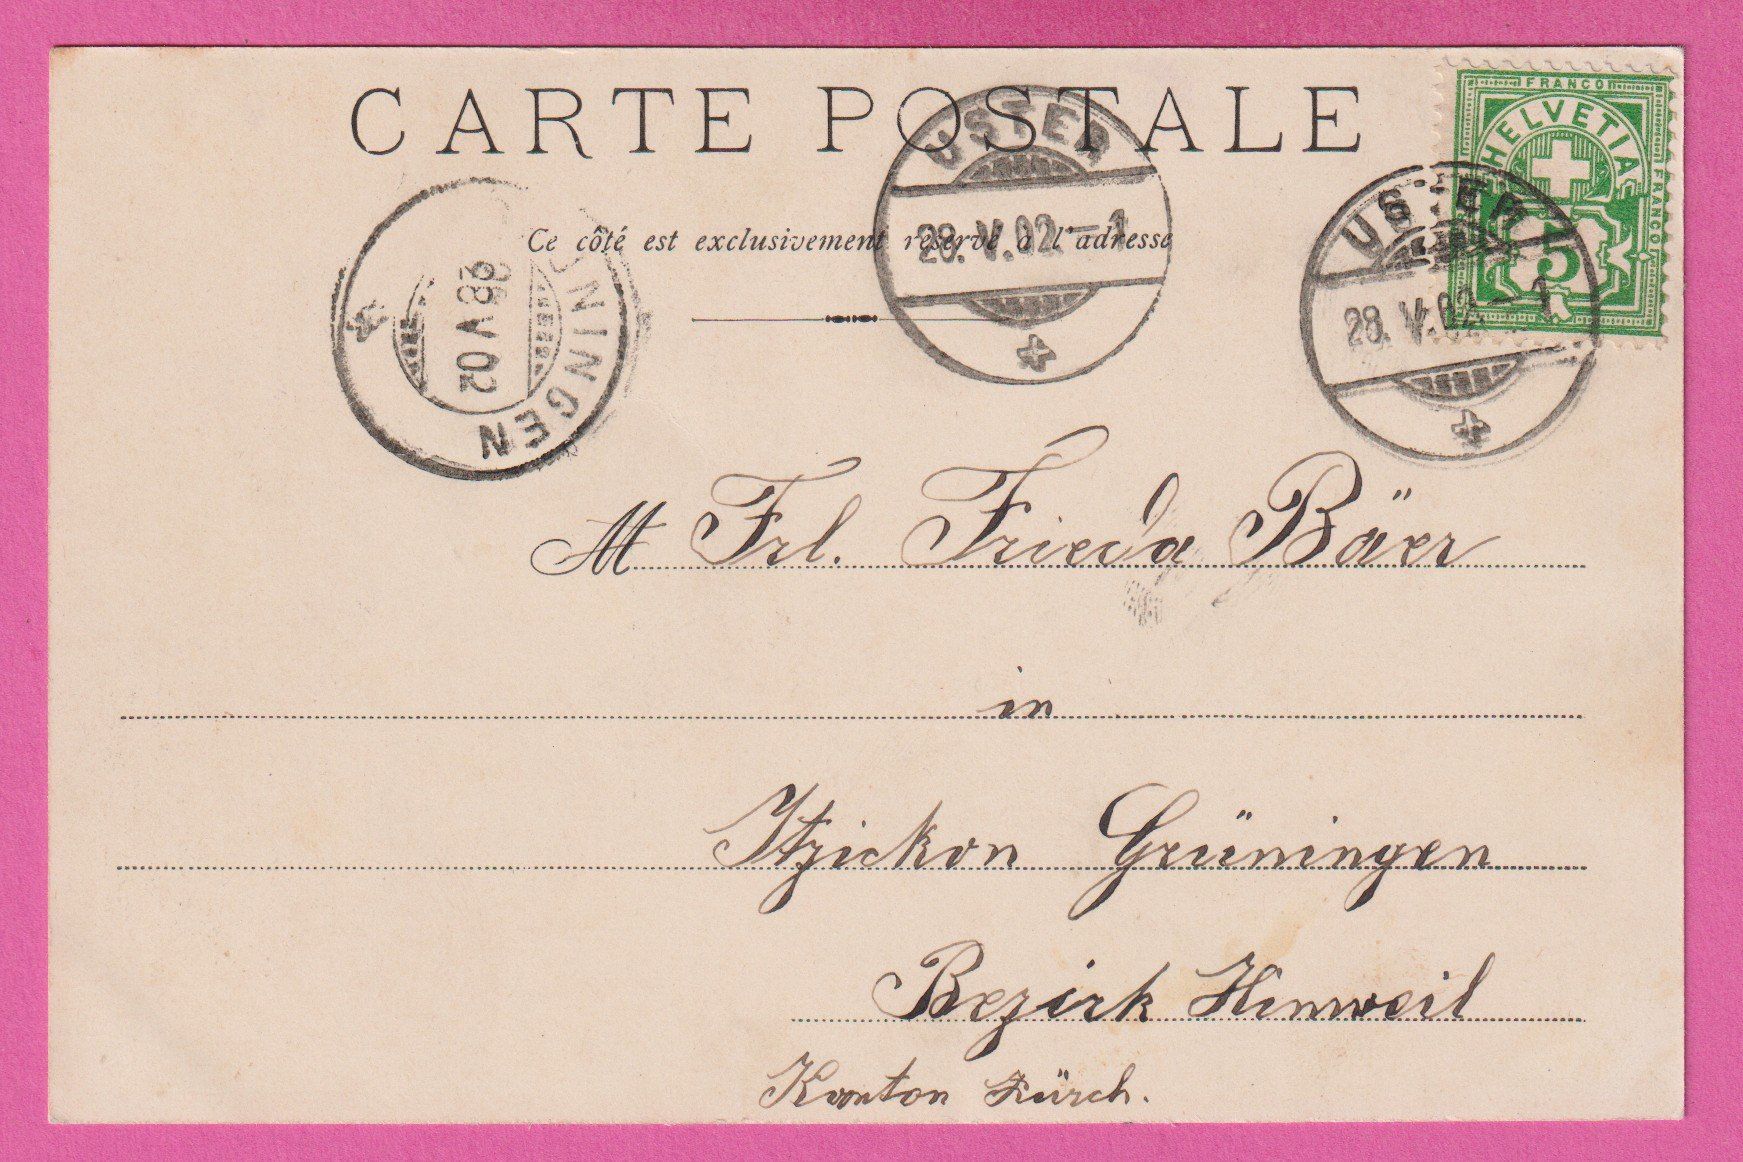 CARTE POSTALE
Ce côté est exclusivement réservé à l'adresse
USTER
28.V.02.–1
USTER
28.V.02.–1
FRANCO
HELVETIA
FRANCO
5
NINGEN
28 V 02
M Frl. Frieda Bäer
in
Itzickon Grüningen
Bezirk Hinweil
Kanton Zürch.